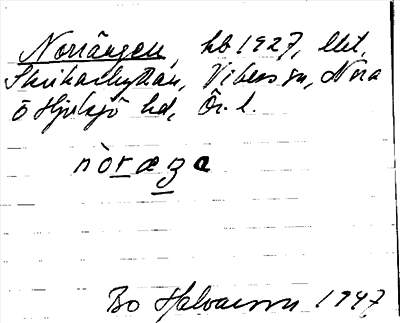 Norrängen, hb 1927, lht,
Skrikarhyttan, Vikers sn, Nora
o Hjulsjö hd, Ör. l.
nòræŋe
Bo Halvarson 1947